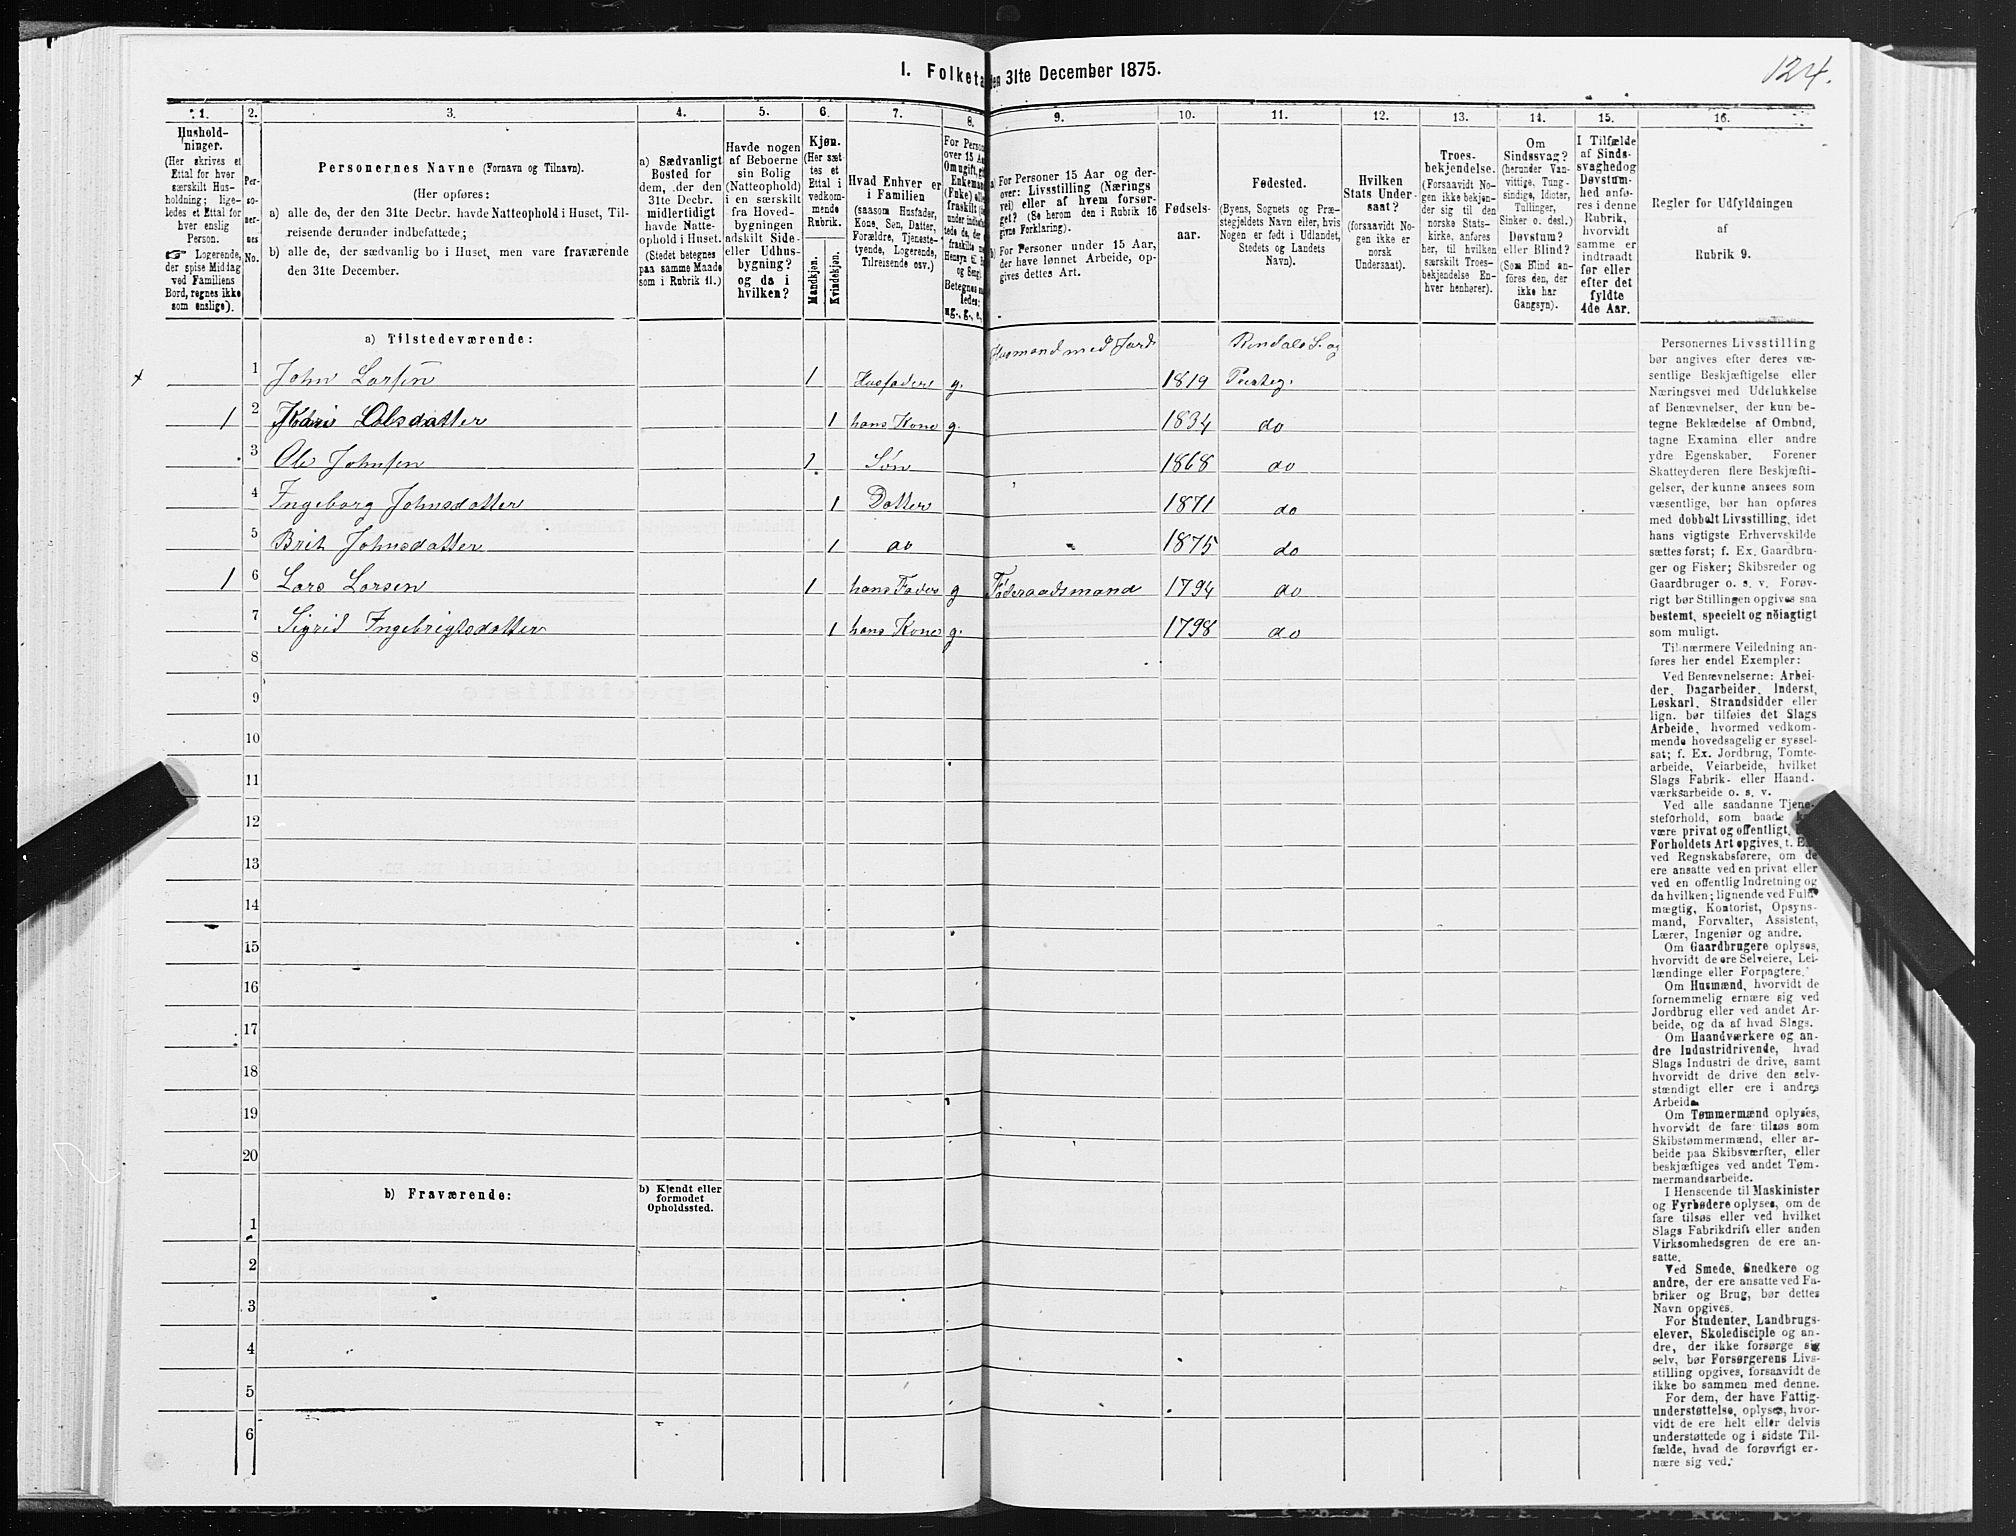 I. Folketæ
en 31te December 1875.
124.
1.
2.
3.
4.
5.
6.
7.
8.
9.
10.
11.
12.
13.
14.
15.
16.
Hushold-
ninger.
(Her skrives et
Ettal for hver
særskilt Hus-
holdning; lige-
ledes et Ettal for
hver enslig
Person.
☞ Logerende,
der spise Middag
ved Familiens
Bord, regnes ikke
som enslige).
Per-
so-
ner-
nes
No.
Personernes Navne (Fornavn og Tilnavn).
(Her opføres:
a) alle de, der den 31te Decbr. havde Natteophold i Huset, Til-
reisende derunder indbefattede;
b) alle de, der sædvanlig bo i Huset, men vare fraværende
den 31te December.
a) Sædvanligt
Bosted for
dem, der den
31te Decbr.
midlertidigt
havde Natte-
ophold i Huset.
(Stedet betegnes
paa samme Maade
som i Rubrik 11.)
Havde nogen
af Beboerne
sin Bolig
(Natteophold)
i en særskilt
fra Hoved-
bygningen
adskilt Side-
eller Udhus-
bygning?
og da i
hvilken?
Kjøn.
(Her sæt-
tes et
Ettal i
vedkom-
mende
Rubrik.
Mandkjøn.
Kvindekjøn.
Hvad Enhver er
i Familien
(saasom Husfader,
Kone, Søn, Datter,
Forældre, Tjeneste-
tyende, Logerende,
Tilreisende osv.)
For Person
over 15 Aa
Om ugift, gi
Enkeman
(Enke) elle
fraskilt (
under indbef
tede de, der e
fraskilte m
Hensyn til B
og Seng)
Betegnes sa
ledes:
ug., g., e.,
a) For Personer 15 Aar og der-
over: Livsstilling (Nærings
vei) eller af hvem forsør-
get? (Se herom den i Rubrik 16
givne Forklaring).
b) For Personer under 15 Aar,
der have lønnet Arbeide, op-
gives dettes Art.
Fødsels-
aar.
Fødested.
(Byens, Sognets og Præ-
stegjeldets Navn eller, hvis
Nogen er født i Udlandet,
Stedets og Landets
Navn).
Hvilken
Stats Under-
saat?
(forsaavidt No-
gen ikke er
norsk
Undersaat).
Troes-
bekjendelse.
(Forsaavidt No-
gen ikke bekjen-
der sig til den
norske Stats-
kirke, anføres
her, til hvilken
særskilt Troes-
bekjendelse En-
hver henhører).
Om
Sindssvag?
(herunder Van-
vittige, Tung-
sindige, Idioter,
Tullinger,
Sinker o. desl.)
Døvstum?
eller Blind?
(Som Blind an-
føres den, der
ikke har
Gangsyn).
I Tilfælde
af Sinds-
svaghed og
Døvstum-
hed anfø-
res i denne
Rubrik,
hvorvidt
samme er
indtraadt
før eller
efter det
fyldte
4de Aar.
Regler for Udfyldningen
af
Rubrik 9.
a) Tilstedeværende:
1 John Larsen 1 Husfader g. Husmand med Jord 1819 Rendals S. og
1 2 Kari Olsdatter 1 hans Kone g. 1834 do
3 Ole Johnsen 1 Søn 1868 do
4 Ingeborg Johnsdatter 1 Datter 1871 do
5 Brit Johnsdatter 1 do 1875 do
1 6 Lars Larsen 1 hans Fader g Føderaadsmand 1794 do
7 Sigrid Ingebrigtsdatter 1 hans Kone g. 1798 do
8
9
10
11
12
13
14
15
16
17
18
19
20
b) Fraværende:
b) Kjendt eller
formodet
Opholdssted.
1
2
3
4
5
6
Personernes Livsstilling
bør angives efter deres væ-
sentlige Beskjæftigelse eller
Næringsvei med Udelukkelse
af Benævnelser, der kun be-
tegne Beklædelse af Ombud,
tagne Examina eller andre
ydre Egenskaber. Forener
Skatteyderen flere Beskjæfti-
gelser, der kunne ansees som
væsentlige, bør han opføres
med dobbelt Livsstilling, idet
hans vigtigste Erhvervskilde
sættes først; f. Ex. Gaardbru-
ger og Fisker; Skibsreder og
Gaardbruger o. s. v. Forøv-
rigt bør Stillingen opgives saa
bestemt, specielt og nøiagtigt
som muligt.
Til nærmere Veiledning an-
føres her endel Exempler:
Ved Benævnelserne: Arbei-
der, Dagarbeider, Inderst,
Løskarl, Strandsidder eller
lign. bør tilføies det Slags
Arbeide, hvormed vedkom-
mende hovedsagelig er syssel-
sat; f. Ex. Jordbrug, Tomte-
arbeide, Veiarbeide, hvilket
Slags Fabrik- eller Haand-
værksarbeide o. s. v.
Ved alle saadanne Tjene-
steforhold, som baade
være privat og offentligt,
Forholdets Art opgives, t. E
ved Regnskabsførere, om de
ere ansatte ved en privat eller
ved en offentlig Indretning og
da hvilken; lignende ved Fuld-
mægtig, Kontorist, Opsyns-
mand, Forvalter, Assistent,
Lærer, Ingeniør og andre.
Om Gaardbrugere oplyses,
hvorvidt de ere Selveiere, Lei-
lændinge eller Forpagtere.
Om Husmænd, hvorvidt de
fornemmelig ernære sig ved
Jordbrug eller ved andet Ar-
beide, og da af hvad Slags.
Om Haandværkere og an-
dre Industridrivende, hvad
Slags Industri de drive, samt
hvorvidt de drive den selv-
stændigt eller ere i andres
Arbeide.
Om Tømmermænd oplyses,
hvorvidt de fare tilsøs som
Skibstømmermænd, eller ar-
beide paa Skibsværfter, eller
beskjæftiges ved andet Tøm-
mermandsarbeide.
I Henseende til Maskinister
og Fyrbødere oplyses, om de
fare tilsøs eller ved hvilket
Slags Fabrikdrift eller anden
Virksomhedsgren de ere an-
satte.
Ved Smede, Snedkere og
andre, der ere ansatte ved Fa-
briker og Brug, bør dettes
Navn opgives.
For Studenter, Landbrugs-
elever, Skoledisciple og an-
dre, der ikke forsørge sig
selv, bør Forsørgerens Livs-
stilling opgives, forsaavidt de
ikke bo sammen med denne.
For dem, der have Fattig-
understøttelse, oplyses, hvor-
vidt de ere helt eller delvis
understøttede og i sidste Til-
fælde, hvad de forøvrigt er-
nære sig ved.